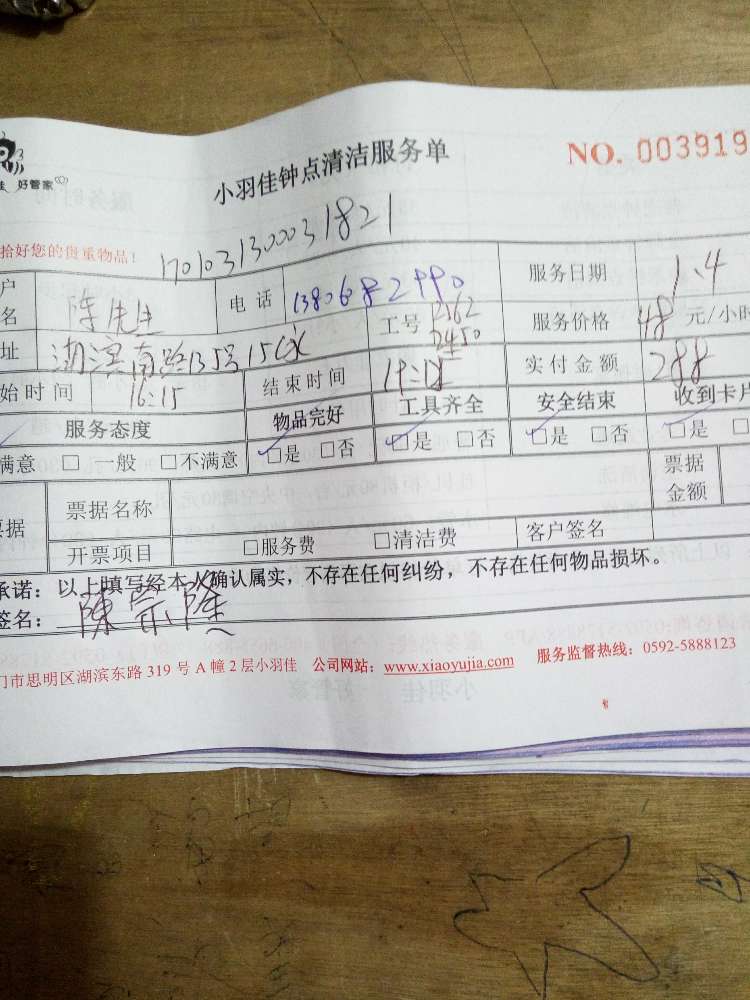 好管家
小羽佳钟点清洁服务单
NO. 003919
拾好您的贵重物品!
1701031300031821
户
名
陈先生
电 话
工号
2562
2450
服务日期
1.4
址
湖滨南路135号15
服务价格
48 元/小时
始时间
16:15
结束时间
实付金额
288
服务态度
物品完好
工具齐全
安全结束
收到卡片
满意 □ 一般 □不满意
□是 □否
□是 □否
□是 □否
□是
票据
票据名称
票据
金额
开票项目
□服务费 □清洁费
客户签名
承诺:以上填写经本人确认属实,不存在任何纠纷,不存在任何物品损坏。
签名:
门市思明区湖滨东路 319 号 A 幢 2 层小羽佳 公司网站:www.xiaoyujia.com 服务监督热线:0592-5888123